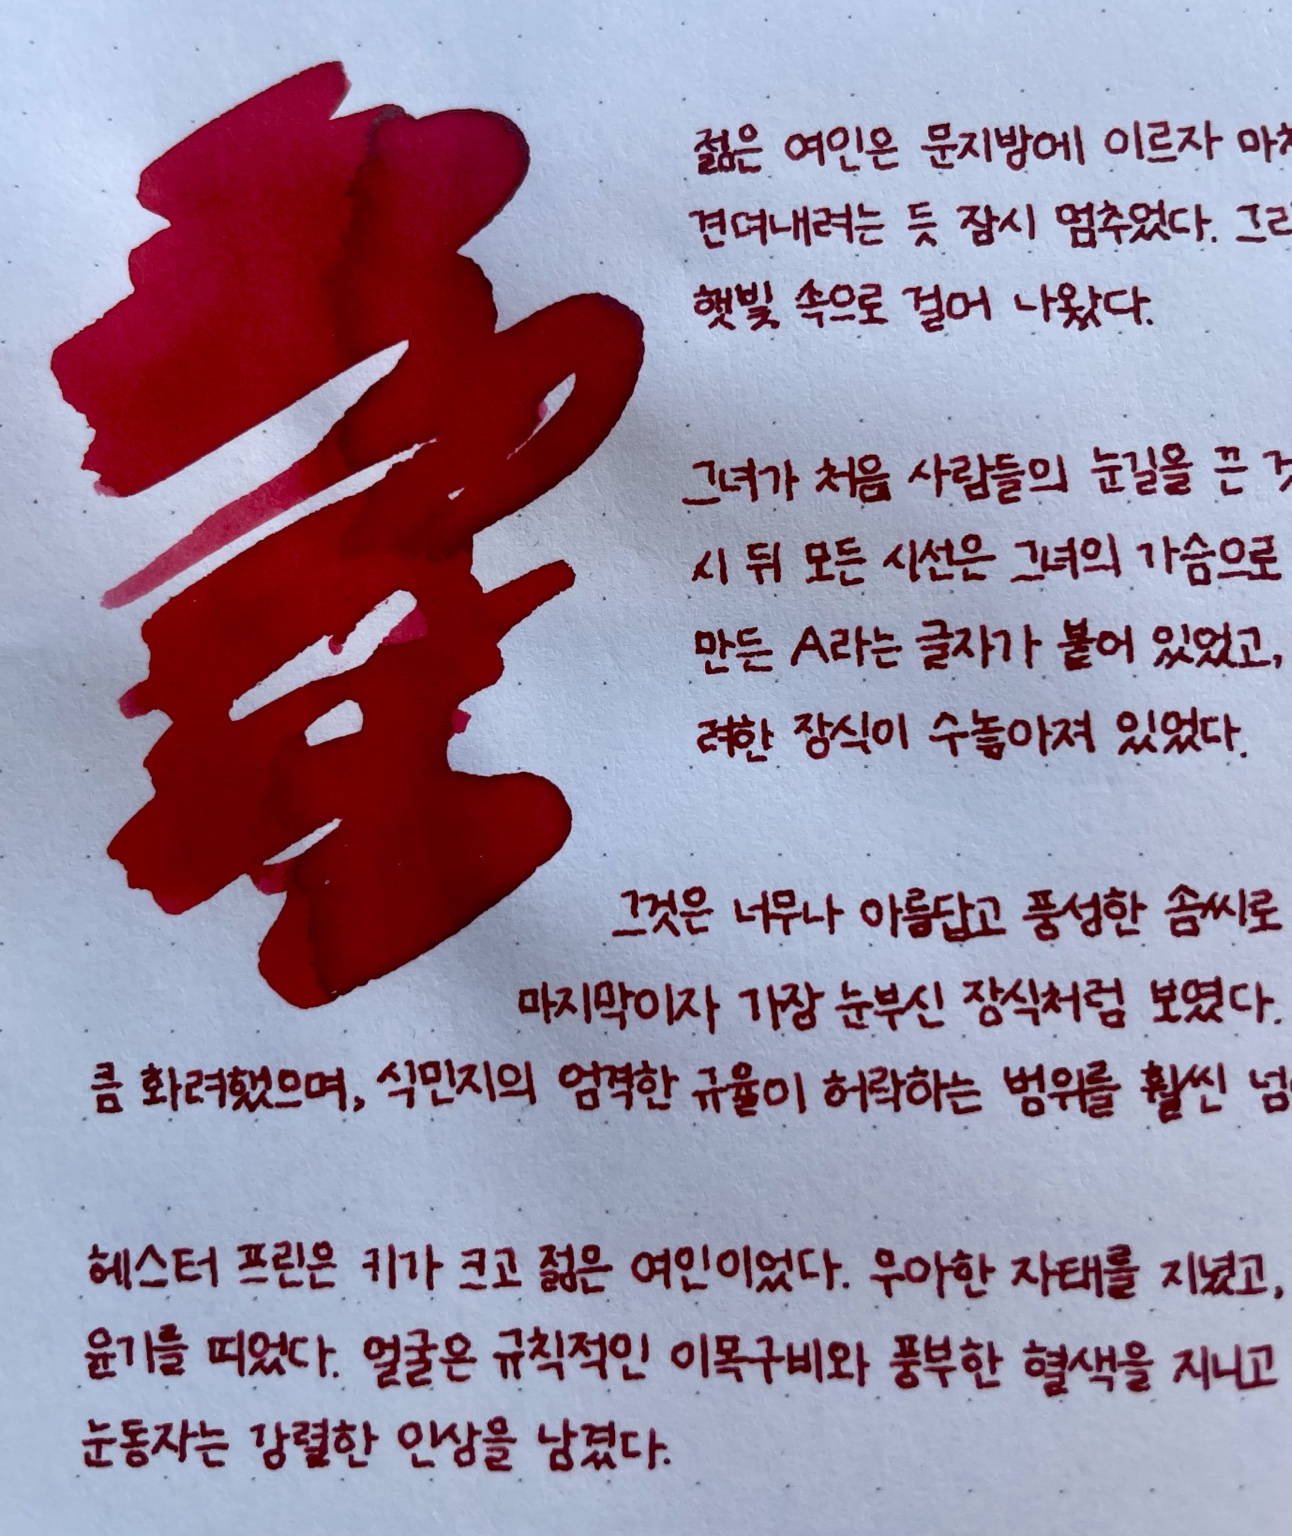 젊은 여인은 문지방에 이르자 마치
견뎌내려는 듯 잠시 멈추었다.
햇빛 속으로 걸어 나왔다.
그녀가 처음 사람들의 눈길을 끈
시 뒤 모든 시선은 그녀의 가슴으로
만든 A라는 글자가 붙어 있었고,
려한 장식이 수놓아져 있었다.
그것은 너무나 아름답고 풍성한 솜씨로
마지막이자 가장 눈부신 장식처럼 보였다.
큼 화려했으며, 식민지의 엄격한 규율이 허락하는 범위를 훨씬
헤스터 프린은 키가 크고 젊은 여인이었다. 우아한 자태를 지녔고,
윤기를 띠었다. 얼굴은 규칙적인 이목구비와 풍부한 혈색을 지니고
눈동자는 강렬한 인상을 남겼다.